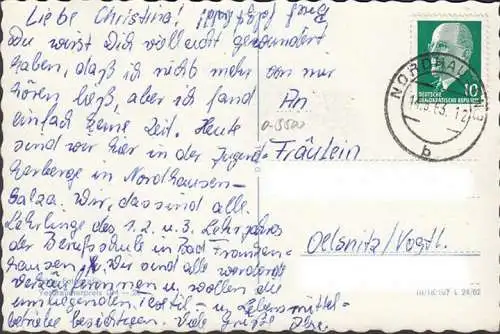 Liebe Christina!
Du wirst Dich vielleicht gewundert
haben, daß ich nichts mehr von mir
hören ließ, aber ich fand
einfach keine Zeit. Heute
sind wir hier in der Jugend-
herberge in Nordhausen-
Salza. Wir, das sind alle
Lehrlinge des 1. 2. u. 3. Lehrjahres
der Berufsschule in Bad Franken-
hausen. Wir sind alle werdende
Verkäuferinnen u. wollen die
umliegenden Textil- u. Lebensmittel-
betriebe besichtigen. Viele Grüße
An
Fräulein
Oelsnitz/Vogtl.
DEUTSCHE
DEMOKRATISCHE REPUBLIK
10
NORDHAUSEN
b